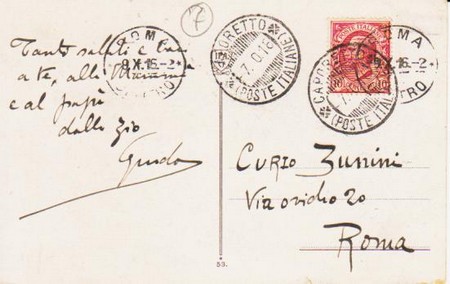 7
Tanti saluti e baci
a te, alla Mamma
e al papà
dallo zio
Guido
ROMA
8.X.16-2
CENTRO
CAPORETTO (UDINE)
7.10.16
(POSTE ITALIANE)
ROMA
16-2
CENTRO
CAPORETTO
(POSTE ITALIANE)
POSTE ITALIANE
10
Curio Zunini
Via ovidio 20
Roma
53.